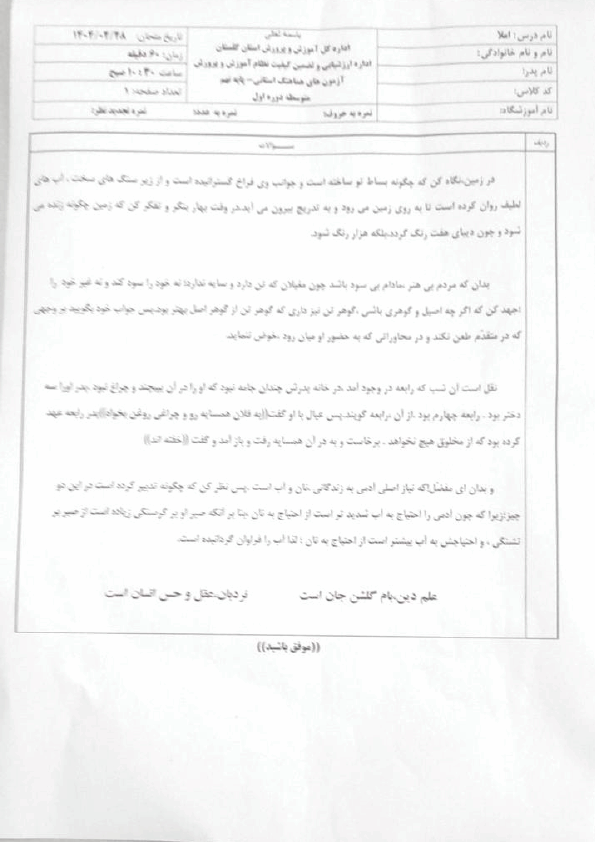 نام درس: املا
نام و نام خانوادگی:
نام پدر:
کد کلاس:
نام آموزشگاه:
باسمه تعالی
اداره کل آموزش و پرورش استان گلستان
اداره ارزشیابی و تضمین کیفیت نظام آموزش و پرورش
آزمون های هماهنگ استانی – پایه نهم
متوسطه دوره اول
نمره به حروف: نمره به عدد:
تاریخ امتحان: ۱۴۰۴/۰۲/۲۸
زمان: ۶۰ دقیقه
ساعت ۱۰:۳۰ صبح
تعداد صفحه: ۱
نمره تجدید نظر:
ردیف ســـوالات
در زمین،نگاه کن که چگونه بساط تو ساخته است و جوانب وی فراخ گسترانیده است و از زیر سنگ های سخت ، آب های
لطیف روان کرده است تا به روی زمین می رود و به تدریج بیرون می آید.در وقت بهار بنگر و تفکر کن که زمین چگونه زنده می
شود و چون دیبای هفت رنگ گردد،بلکه هزار رنگ شود.
بدان که مردم بی هنر ،مادام بی سود باشد چون مغیلان که تن دارد و سایه ندارد؛ نه خود را سود کند و نه غیر خود را
اجهد کن که اگر چه اصیل و گوهری باشی ،گوهر تن نیز داری که گوهر تن از گوهر اصل بهتر بود.پس جواب خود بگویید بر وجهی
که در متقدّم طعن نکند و در محاوراتی که به حضور او میان رود ،خوض ننماید.
نقل است آن شب که رابعه در وجود آمد ،در خانه پدرش چندان جامه نبود که او را در آن بپیچند و چراغ نبود .پدر اورا سه
دختر بود . رابعه چهارم بود .از آن ،رابعه گویند.پس عیال با او گفت((به فلان همسایه رو و چراغی روغن بخواه))پدر رابعه عهد
کرده بود که از مخلوق هیچ نخواهد . برخاست و به در آن همسایه رفت و باز آمد و گفت ((خفته اند))
و بدان ای مفضّل!که نیاز اصلی آدمی به زندگانی ،نان و آب است .پس نظر کن که چگونه تدبیر کرده است در این دو
چیز،زیرا که چون آدمی را احتیاج به آب شدید تر است از احتیاج به نان ،بنا بر آنکه صبر او بر گرسنگی زیاده است از صبر بر
تشنگی ، و احتیاجش به آب بیشتر است از احتیاج به نان ؛ لذا آب را فراوان گردانیده است.
علم دین،بام گلشن جان است نردبان،عقل و حس انسان است
((موفق باشید))